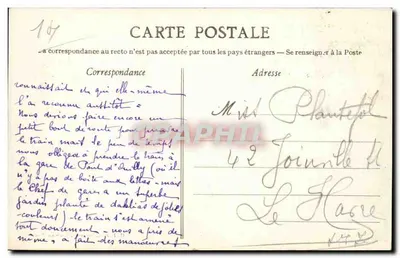 107
CARTE POSTALE
La correspondance au recto n'est pas acceptée par tous les pays étrangers — Se renseigner à la Poste
Correspondance
Adresse
connaissait et qui elle-même
l'a reconnu aussitôt.
Nous devions faire encore un
petit bout de route pour prendre
le train mais le peu de temps
nous obligea à prendre le train à
la gare de Pont d'Ouilly (où il
n'y a pas de boîte aux lettres - mais
le Chef de gare a un superbe
jardin planté de dahlias de jolies
couleurs) - le train s'est amené
tout doucement - nous a près de
même - a fait des manœuvres
Miss Plantefol
42 Joinville St
Le Havre